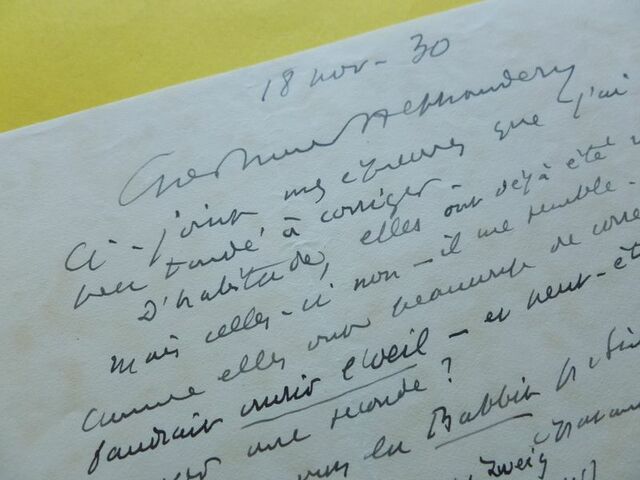 18 nov - 30
Cher Monsieur Alphandéry
Ci-joint mes épreuves que j'ai
peu tardé à corriger -
D'habitude, elles ont déjà été
Mais celles-ci non - il me semble -
Comme elles ont beaucoup de
faudrait avoir l'oeil - et peut-êt
une seconde ?
vous lu Babbit
Zweig